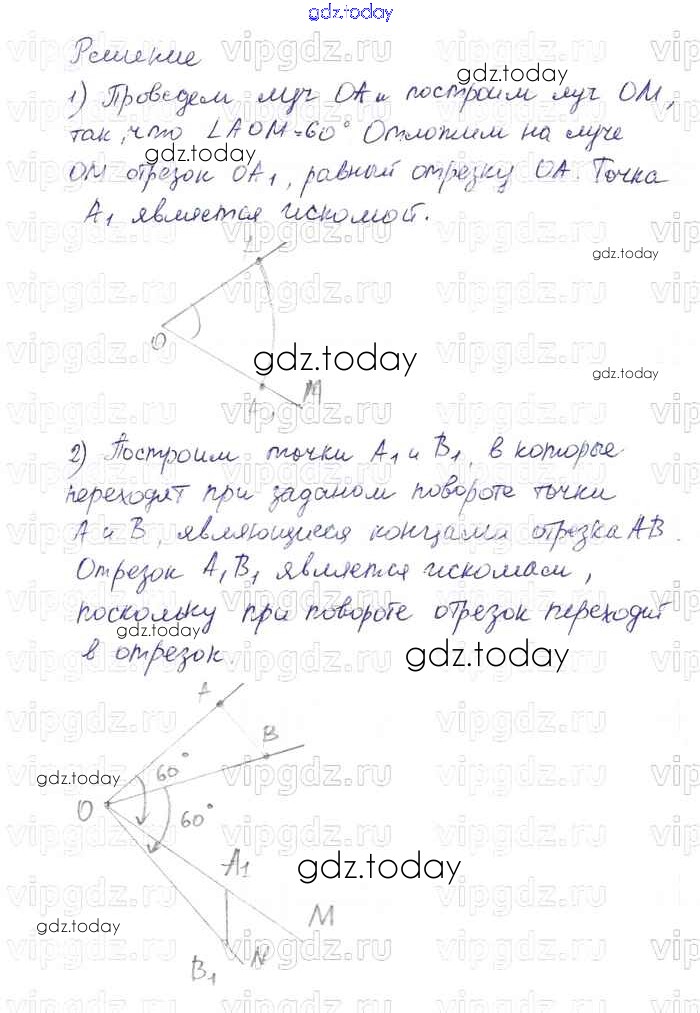 gdz.today
Решение
gdz.today
1) Проведем луч OA и построим луч OM,
так, что ∠AOM=60° Отложим на луче
gdz.today
OM отрезок OA1, равный отрезку OA. Точка
A1 является искомой.
gdz.today
O
gdz.today
gdz.today
A1 M
2) Построим точки A1 и B1, в которые
переходят при заданом повороте точки
A и B, являющиеся концами отрезка AB.
Отрезок A1B1 является искомасм,
поскольку при повороте отрезок переходит
gdz.today
в отрезок.
gdz.today
A
B
gdz.today
60°
O
60°
A1
gdz.today
M
gdz.today
B1 N
vipgdz.ru